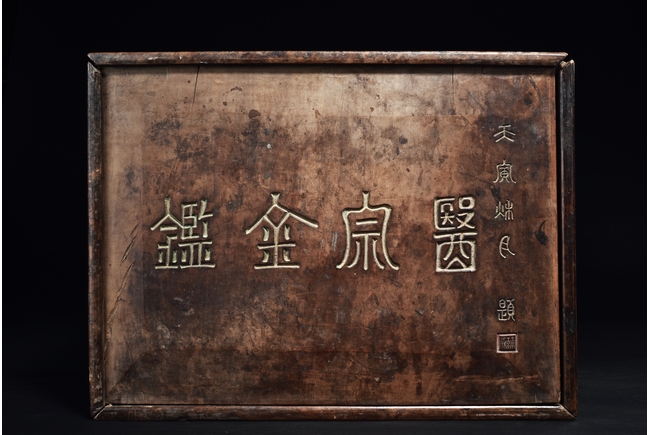 壬寅秌月 題
醫宗金鑑